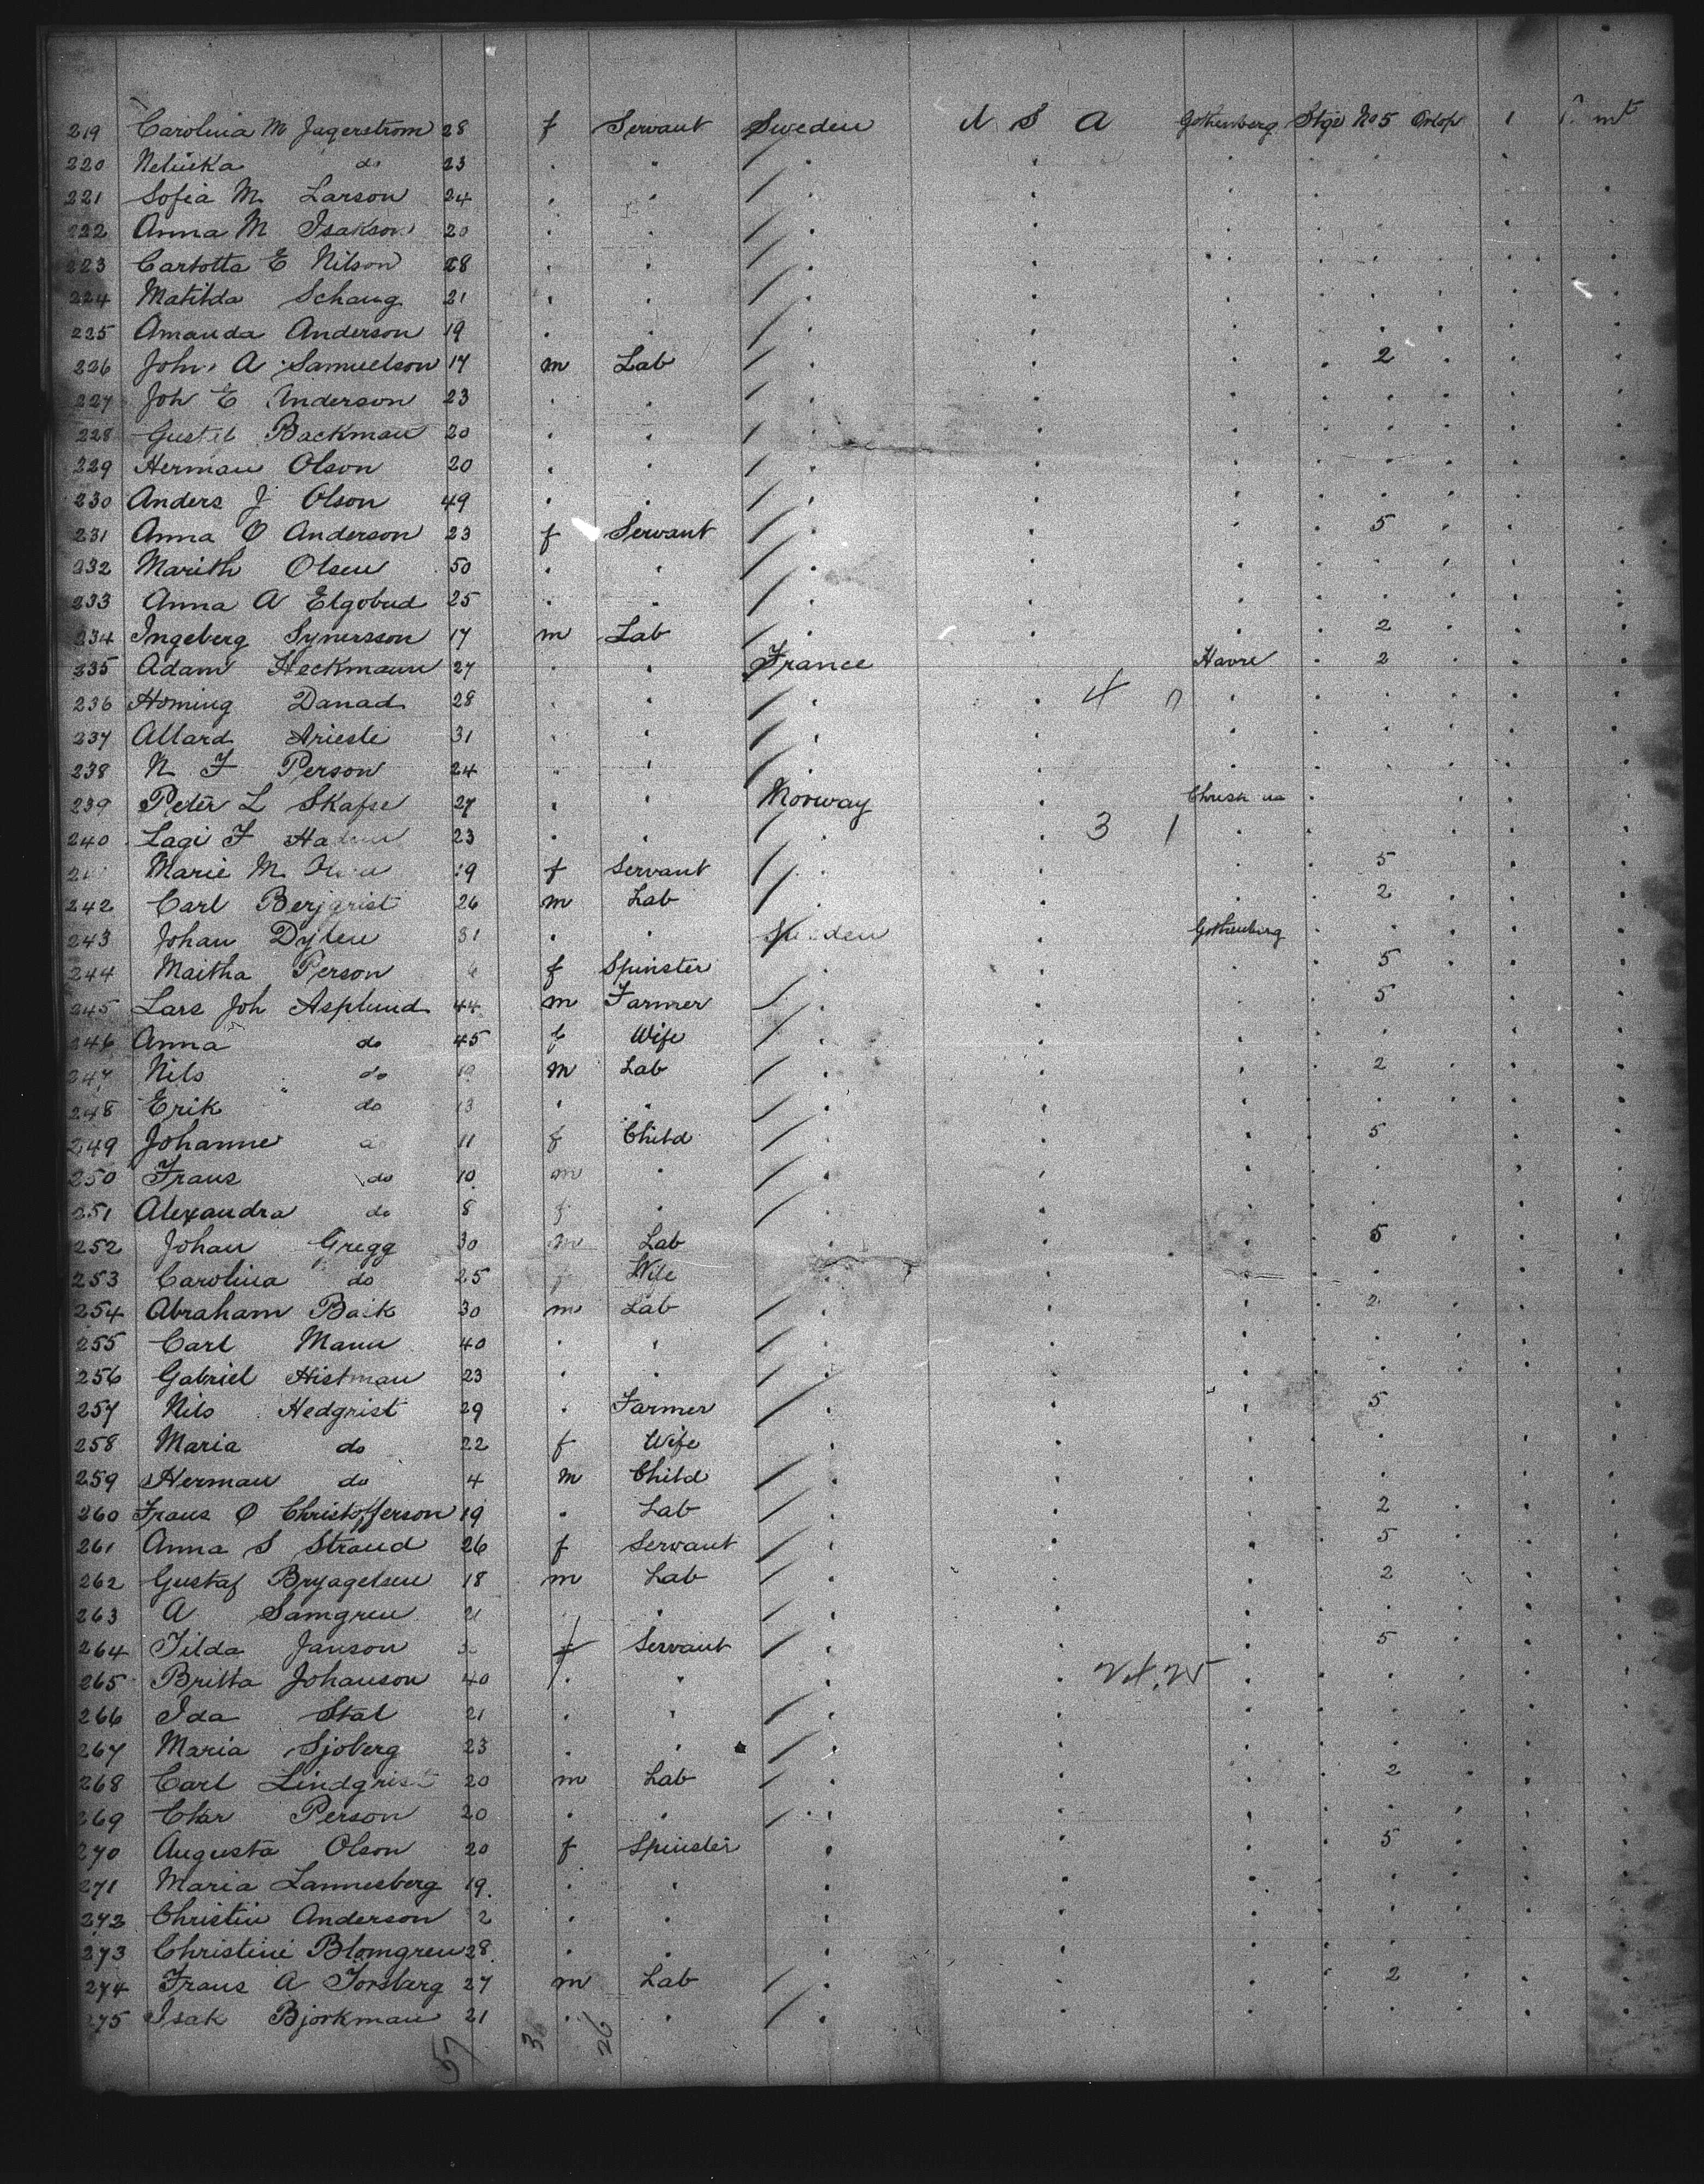 219 Carolina M Jagerstrom 28 f Servant Sweden U S A Gothenberg Stge No 5 Orlop 1
220 do 23 . " / . . . . . . .
221 Sofia M. Larson 24 . . / . . . .
222 Anna M Isakson 20 . . / . . . .
223 Carlotta E Nilson 28 . . / . . . .
224 Matilda Schaug 21 . . / . . . .
225 Amanda Anderson 19 . . / . . . .
226 John A Samuelson 17 m Lab / . . . . 2 . . .
227 Joh E Anderson 23 . . / . . . .
228 Backman 20 . . / . . . .
229 Herman Olson 20 . . / . . . .
230 Anders J Olson 49 . . / . . . .
231 Anna O Anderson 23 f Servant / . . . . 5 . . .
232 Marith Olsen 50 . . / . . . .
233 Anna A Elgobud 25 . . / . . . .
234 Ingeberg Synersson 17 m Lab / . . . . 2 . . .
235 Adam Heckmann 27 . . France Havre . 2 . . .
236 Homing Danad 28 . . / . . 4 . . . .
237 Allard Arieste 31 . . / . . . .
238 N F Person 24 . . / . . . .
239 Peter L Skafse 27 . . Norway . . . . .
240 Lagi F 23 . . / . . 3 1 . . . .
Marie M 19 f Servant / . . . . 5 . . .
242 Carl Berjqrist 26 m Lab / . . . . 2 . . .
243 Johan Dylen 31 . . Sweden . Gothenberg . . . .
244 Maitha Person f Spinster . . . . 5 . . .
245 Lars Joh Asplund 44 m Farmer / . . . . 5 . . .
246 Anna do 45 f Wife / . . . . . .
247 Nils do 19 m Lab / . . . . 2 . . .
248 Erik do 13 . . / . . . .
249 Johanne 11 f Child / . . . . 5 . . .
250 Frans do 10 m . / . . . .
251 Alexandra do 8 f . / . . . .
252 Johan Gregg 30 m Lab . . . . 5 . . .
253 Carolina do 25 f Wife . . . . .
254 Abraham Back 30 m Lab / . . . . 2 . . .
255 Carl Mann 40 . . / . . . .
256 Gabriel Histman 23 . . / . . . .
257 Nils Hedgrist 29 . Farmer / . . . . 5 . . .
258 Maria do 22 f Wife / . . . .
259 Herman do 4 m Child / . . . .
260 Frans O Christofferson 19 . Lab / . . . . 2 . . .
261 Anna S Strand 26 f Servant / . . . . 5 . . .
262 Gustaf Bryagelsen 18 m Lab / . . . . 2 . . .
263 A Samgren 21 . . / . . . .
264 Tilda Janson f Servant / . . . . 5 . . .
265 Britta Johanson 40 . " . . . . .
266 Ida Stal 21 . . / . . . .
267 Maria Sjoberg 23 . . / . . . .
268 Carl Lindgrist 20 m Lab / . . . . 2 . . .
269 Char Person 20 . . / . . . .
270 Augusta Olson 20 f Spinster . . . . 5 . . .
271 Maria Lannesberg 19 . . . . . .
272 Christin Anderson . . . . . .
273 Christine Blomgren 28 . . . . . .
274 Frans A Forsberg 27 m Lab / . . . . 2 . . .
275 Isak Bjorkman 21 . . / . . . .
57 26